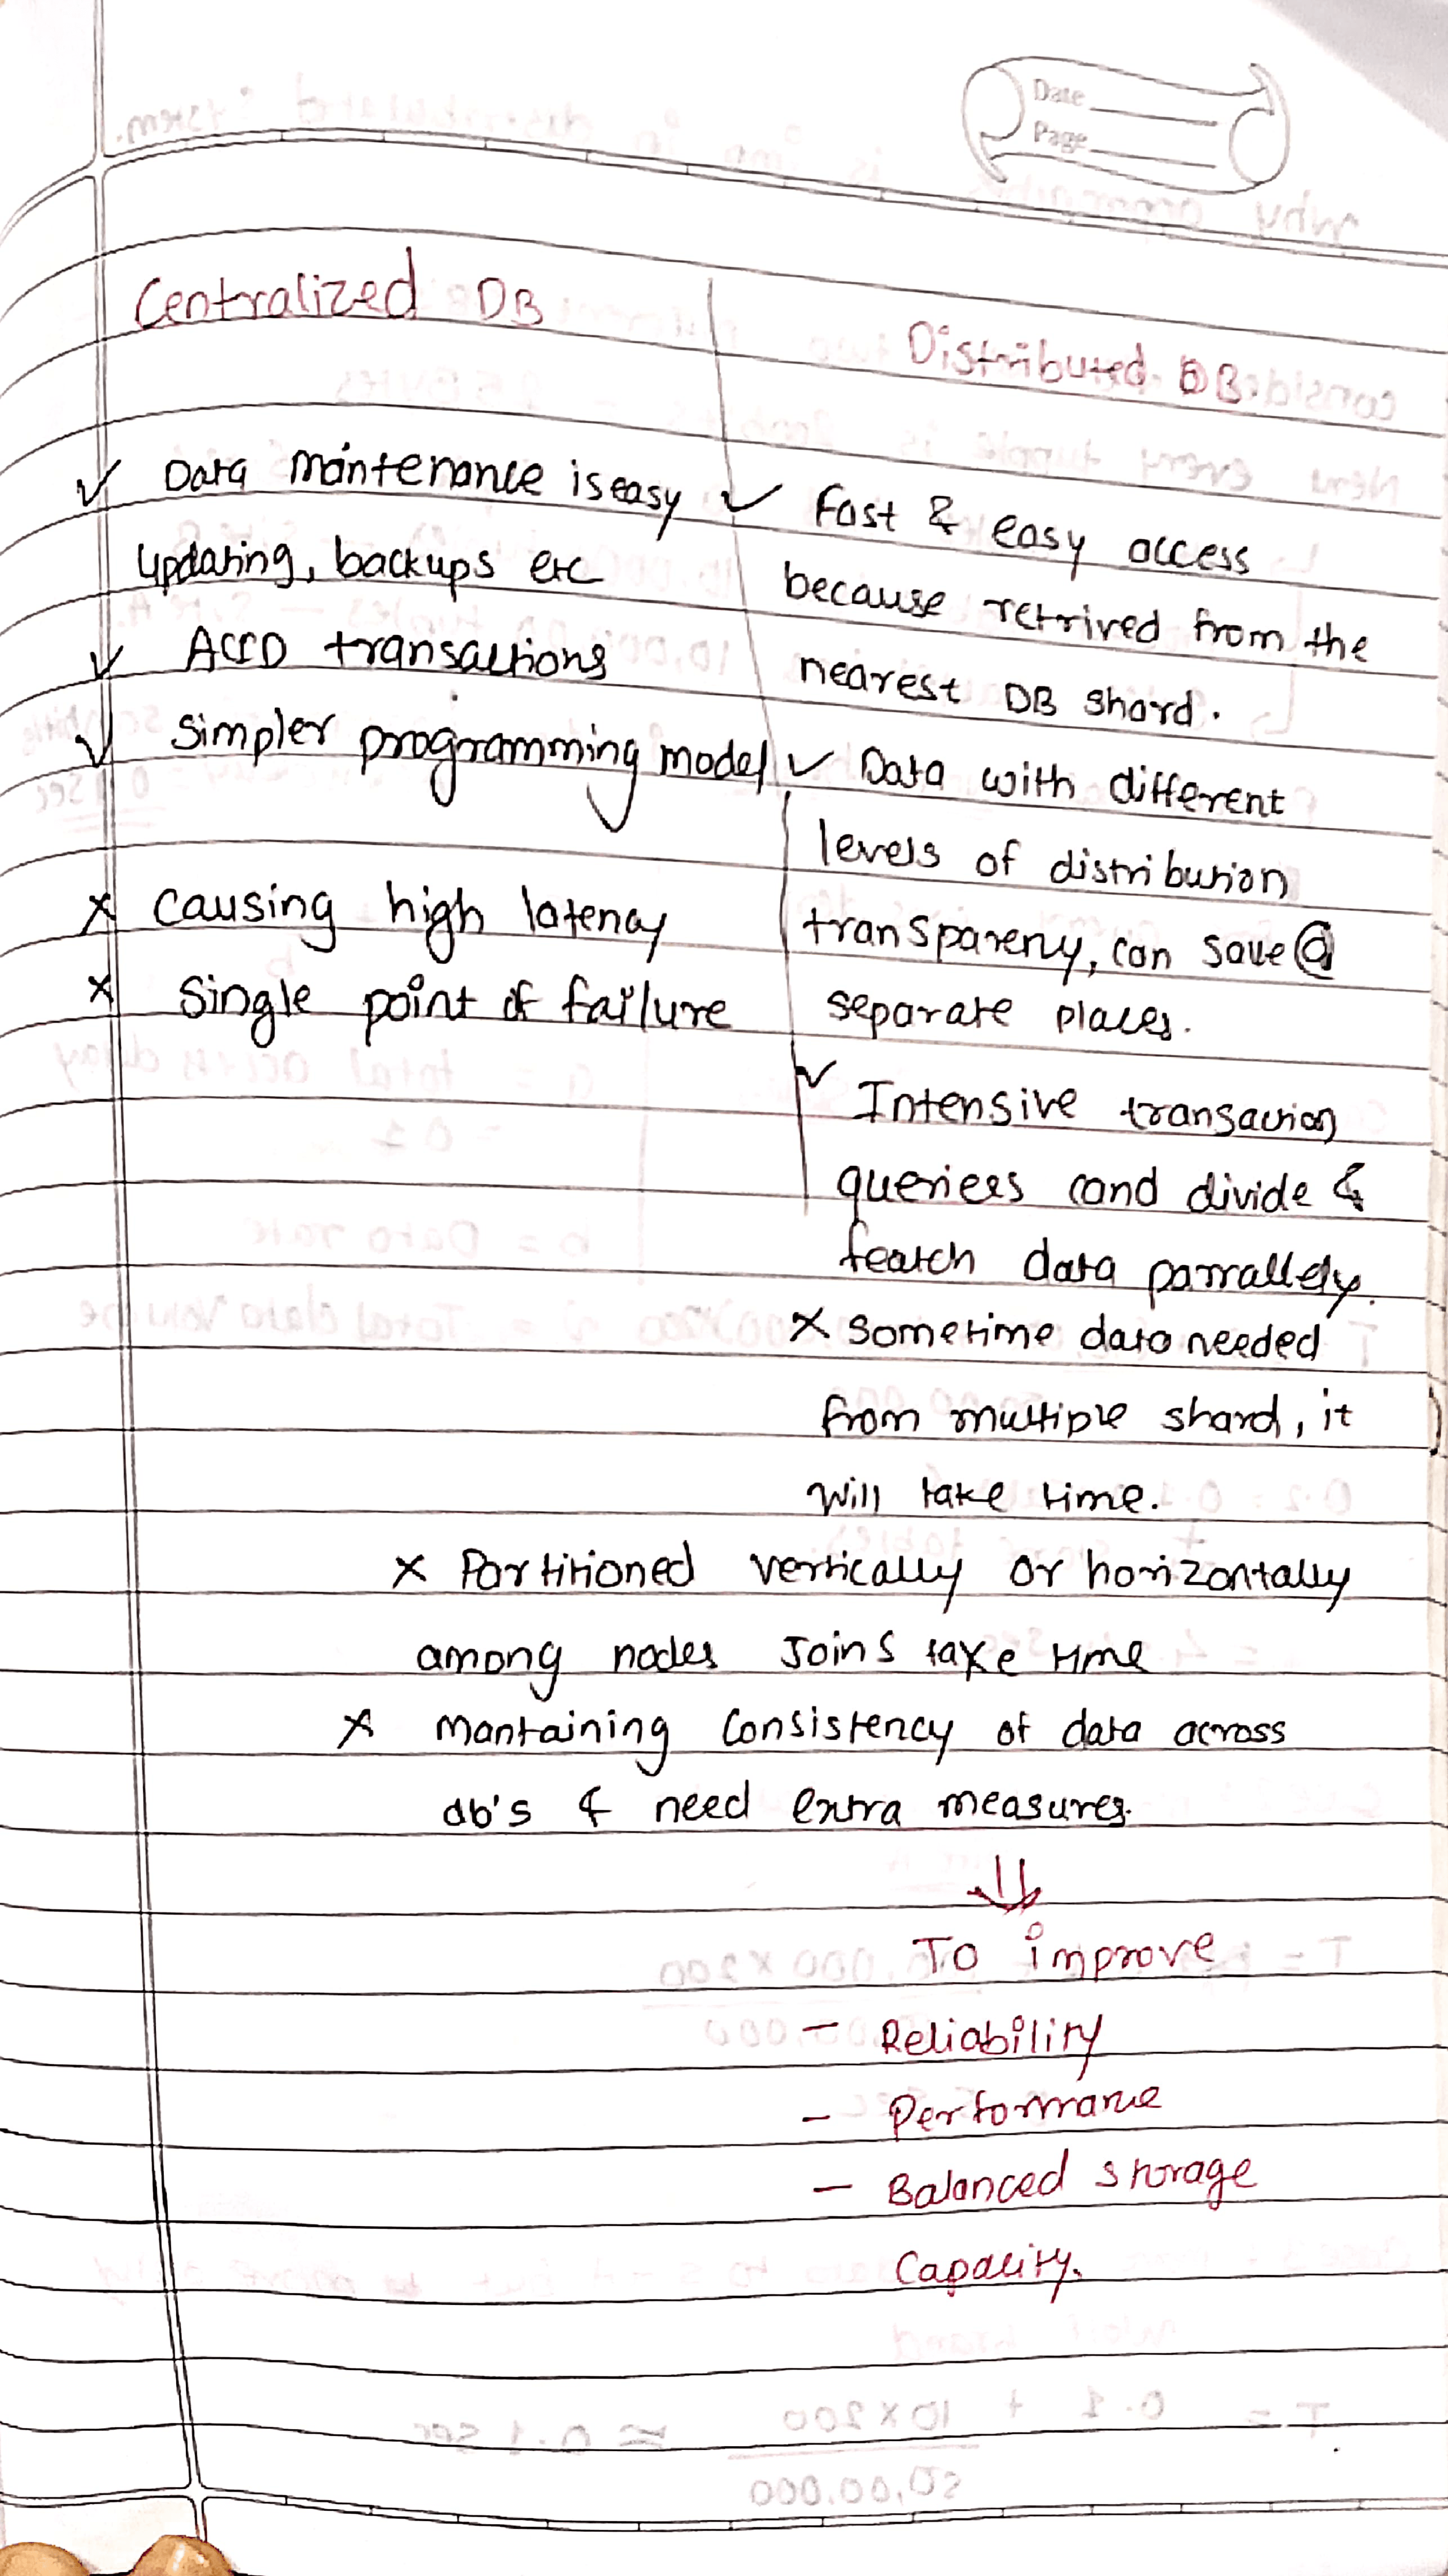 Date
Page
Centralized DB
✓ Data maintenance is easy
updating, backups etc
✓ ACID transactions
✓ Simpler programming model
x causing high latency
x Single point of failure
Distributed DB
✓ Fast & easy access
because retrived from the
nearest DB shard.
✓ Data with different
levels of distribution
transpareny, can save @
separate places.
✓ Intensive transaction
queriees cand divide &
featch data parrallely.
x sometime data needed
from multiple shard, it
will take time.
x Partitioned vertically or horizontally
among nodes Joins take time
x mantaining consistency of data across
db's & need extra measures.
To improve
- Reliability
- Performance
- Balanced storage
Capacity.